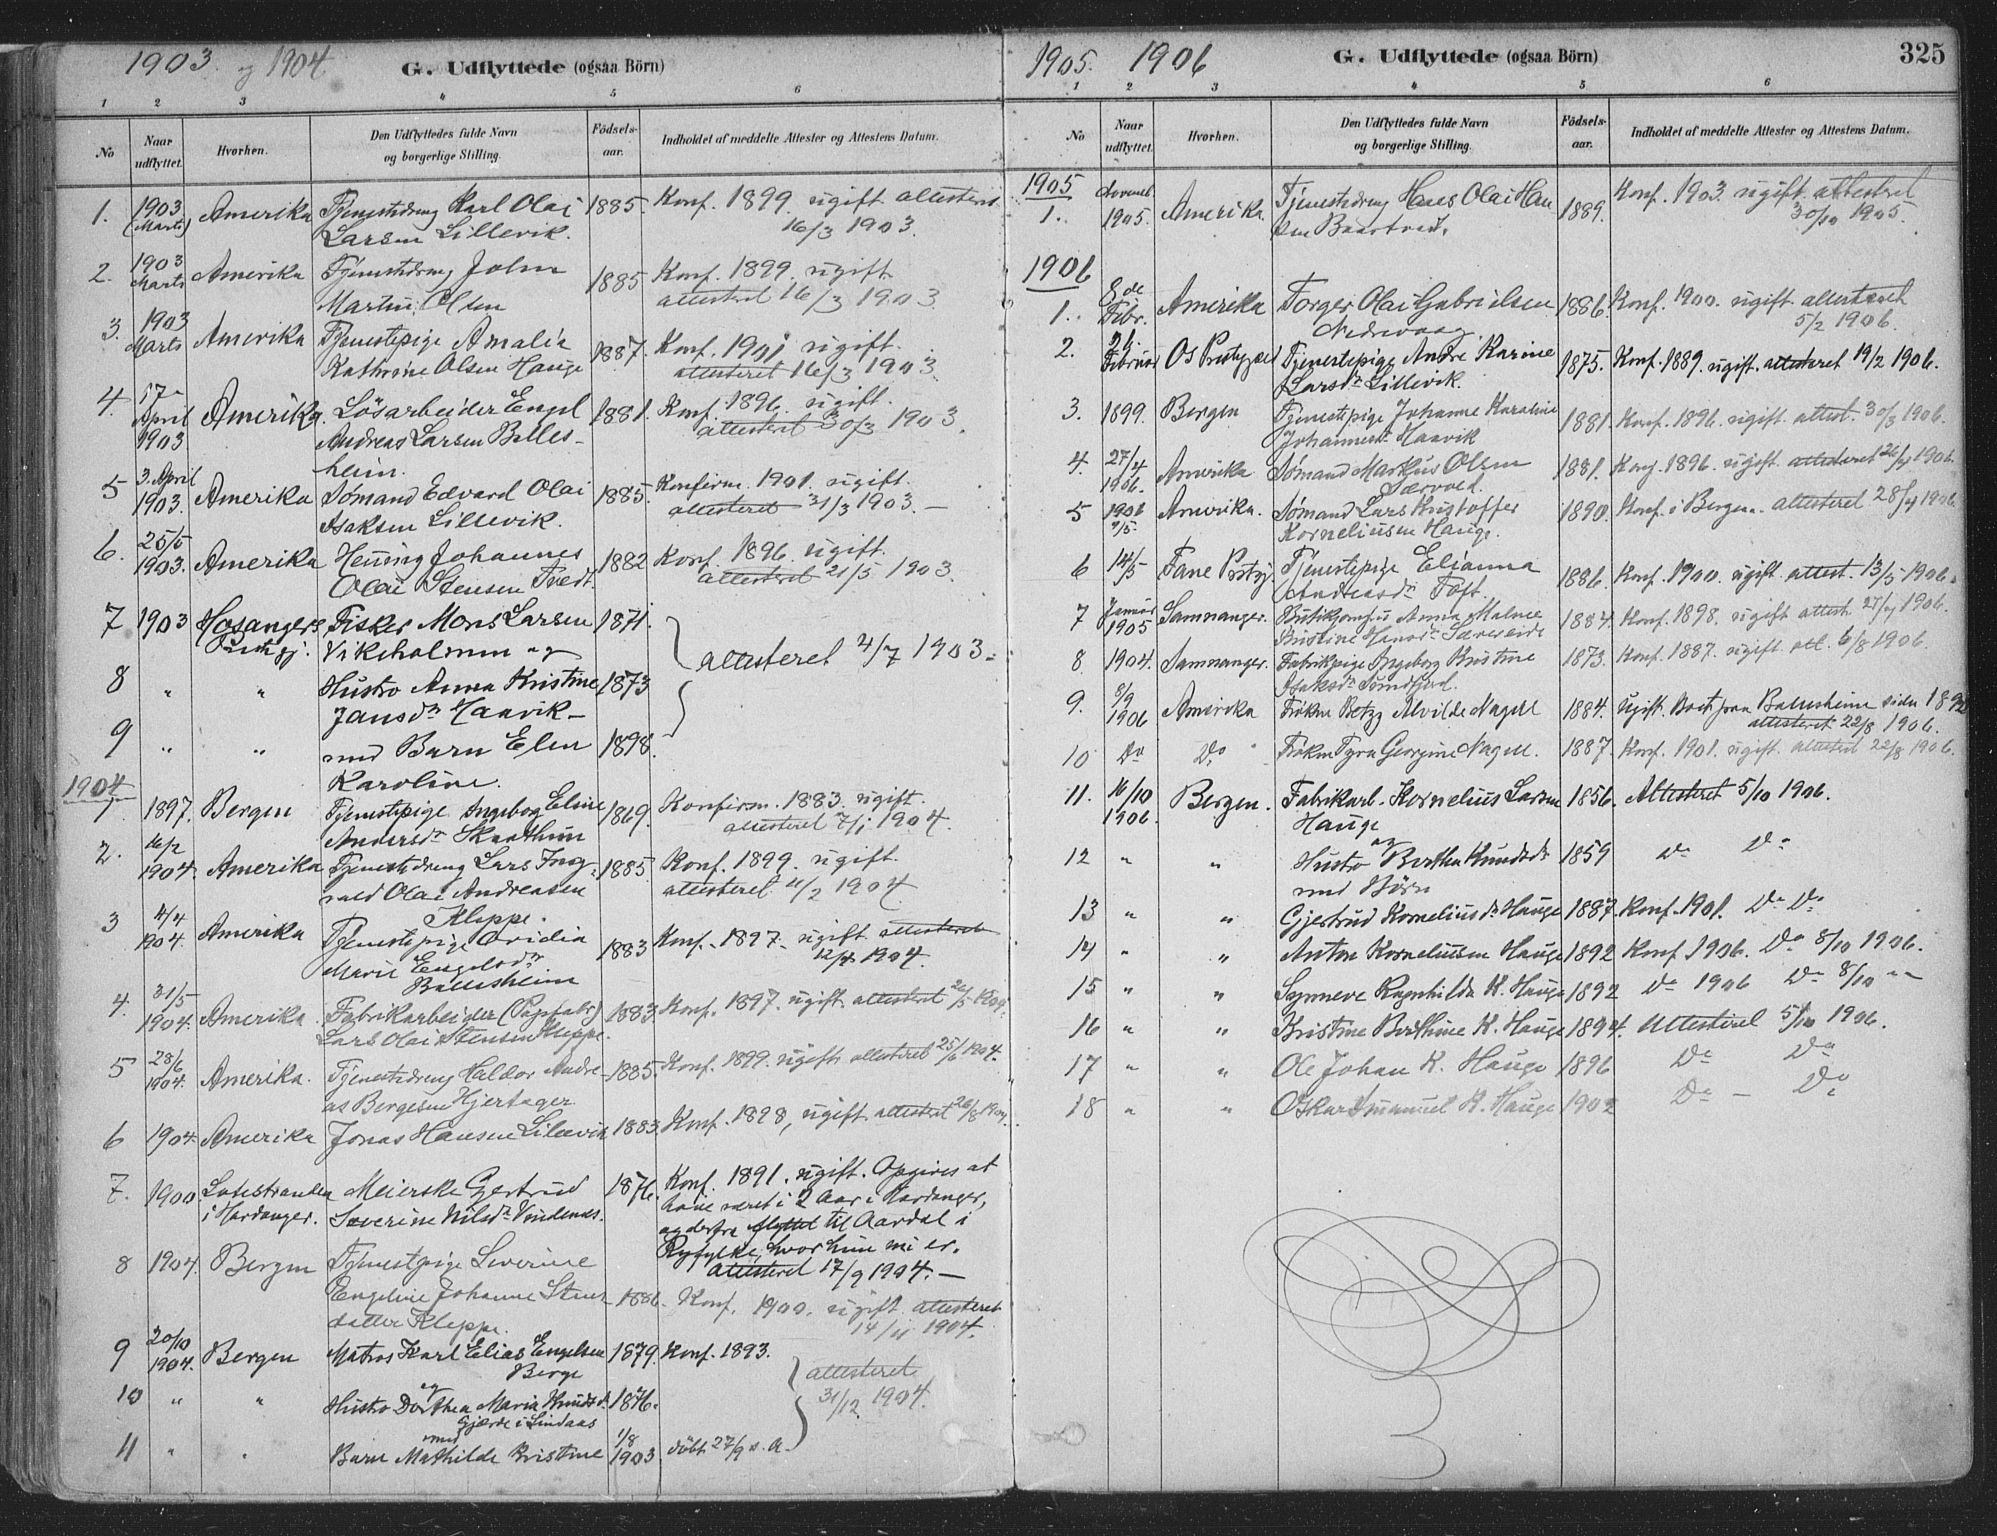 1903 og 1904
G. Udflyttede (ogsaa Börn)
1 2 3 4 5 6
No
Naar udflyttet.
Hvorhen.
Den Udflyttedes fulde Navn og borgerlige Stilling.
Födsels-aar.
Indholdet af meddelte Attester og Attestens Datum.
1. 1903 (Marts) Amerika Tjenestedreng Karl Olai 1885 Konf. 1899 ugift attesteret
Larsen Lillevik. 16/3 1903.
2. 1903 Marts Amerika Tjenestedreng John 1885 Konf. 1899. ugift
Martin Olsen attesteret 16/3 1903
3. 1903 Marts Amerika Tjenestepige Amalia 1887. Konf. 1901. ugift.
Kathrine Olsen Hauge attesteret 16/3 1903.
4. April 1903 Amerika. Lösarbeider Engel 1881. Konf. 1896. ugift.
Andreas Larsen Balles- attesteret 30/3 1903.
heim.
5 3. April 1903. Amerika Sömand Edvard Olai 1885. Konfirm. 1901. ugift.
Isaksen Lillevik. attesteret 31/3 1903. —
6. 25/5 1903. Amerika Johannes 1882 Konf. 1896. ugift.
Olai Stensen Tvedt. attesteret 21/5 1903.
7 1903 Hosangers Fisker Mons Larsen 1871.
Præstegj. Vikeholmen og attesteret 2/7 1903.
8 " " Hustro Anna Kristine 1873
Jansdr Haavik —
9 " " med Barn Elen 1898.
Karoline.
1904
1 1897. Bergen Tjenestepige Ingeborg Eline 1869. Konfirm. 1883. ugift.
Andersdr Skaathun attesteret 7/1 1904.
2. 16/2 1904. Amerika Tjenestedreng Lars Ing- 1885. Konf. 1899. ugift.
vald Olai Andreasen attesteret 11/2 1904.
Kleppe.
3 4/4 1904. Amerika Tjenestepige Ovidia 1883 Konf. 1897. ugift. attesteret
Marie Engelsdr 1904.
Ballesheim
4. 31/5 1904. Amerika. Fabrikarbeider (Papfabr) 1883. Konf. 1897. ugift attesteret 26/5 1904.
Lars Olai Stensen Kleppe.
5 28/6 1904. Amerika. Tjenestedreng Haldor Andre- 1885. Konf. 1899. ugift. attesteret 25/6 1904.
as Bergesen Hjertager
6 1904. Amerika Jonas Hansen Lillevik 1883. Konf. 1898, ugift. attesteret 26/8 1904.
7. 1900. i Hardanger. Meierske Gjertrud 1876. Konf. 1891. ugift. Opgives at
Severine Nilsdr Vindenæs. have været i 2 Aar i Hardanger,
og derfra flyttet til Aardal i
Ryfylke, hvor hun nu er.
attesteret 17/9 1904. —
8 1904. Bergen Tjenestepige Severine
Engeline Johanne Stens- 1886. Konf. 1900. ugift. attesteret
datter Kleppe. 14/11 1904.
9 20/10 1904. Bergen Matros Karl Elias Engelsen 1879. Konf. 1893.
Berge attesteret
10 " " og Hustro Dorthea Maria Knudsd. 1876. 31/12 1904.
Gjerde i Lindaas
11 " " med Barn Mathilde Kristine 1/8 1903 döbt 27/9 s. A.
1905. 1906
G. Udflyttede (ogsaa Börn)
325
1 2 3 4 5 6
No
Naar udflyttet.
Hvorhen.
Den Udflyttedes fulde Navn og borgerlige Stilling.
Födsels-aar.
Indholdet af meddelte Attester og Attestens Datum.
1905
1. Novemb. 1905. Amerika Tjenestedreng Hans Olai Han- 1889. Konf. 1903. ugift attesteret
sen Baastved. 30/10 1905.
1906
1. 8de Febr. Amerika Torger Olai Gabrielsen 1886. Konf. 1900. ugift. attesteret
Nedrevaag 5/2 1906.
2. Februar Os Prestegjeld Tjenestepige Andre Karine 1875. Konf. 1889. ugift. attesteret 19/2 1906.
Larsdr Lillevik.
3. 1899. Bergen Tjenestepige Johanne Karoline 1881. Konf. 1896. ugift. attest. 30/3 1906.
Johannesdr Haavik
4. 27/4 1906. Amerika Sömand Markus Olsen 1881. Konf. 1896. ugift. attesteret 26/4 1906.
5 1906 Amerika. Sömand Lars Kristoffer 1890. Konf. i Bergen. attesteret 28/4 1906.
Korneliusen Hauge.
6 14/5 Fane Prstgj. Tjenestepige Elianna 1886. Konf. 1900. ugift. attest. 13/5 1906.
Andreasdr Toft.
7 Januar 1905 Samnanger. Butikjomfru Anna Malene 1884. Konf. 1898. ugift attest. 27/4 1906.
Kristine
8 1904. Samnanger. Fabrikpige Ingeborg Kristine 1873. Konf. 1887. ugift. att. 6/8 1906.
Isaksdr
9. 8/9 1906 Amerika Fröken Betzy Alvilde Nagell 1884. Ugift. Bort fra Ballesheim siden 1892
attesteret 22/8 1906.
10 Do Do Fröken Tyra Georgine Nagell. 1887. Konf. 1901. ugift. attesteret 22/8 1906.
11. 16/10 1906. Bergen. Fabrikarb. Kornelius Larsen 1856. Attesteret 5/10 1906.
Hauge
12 " " og Hustro Bertha Knudsdr 1859 Do Do
med Börn
13 " " Gjertrud Korneliusdr Hauge 1887. Konf. 1901. Do Do
14 " " Anton Korneliusen Hauge 1892 Konf 1906. Do 8/10 1906.
15 " " Synneve Ragnhilda K. Hauge 1892 Do 1906 Do 8/10 "
16 " " Kristine Berthine K. Hauge 1894. Attesteret 5/10 1906.
17 " " Ole Johan K. Hauge 1896 Do Do
18 " " Oskar Imanuel K. Hauge 1902 Do — Do